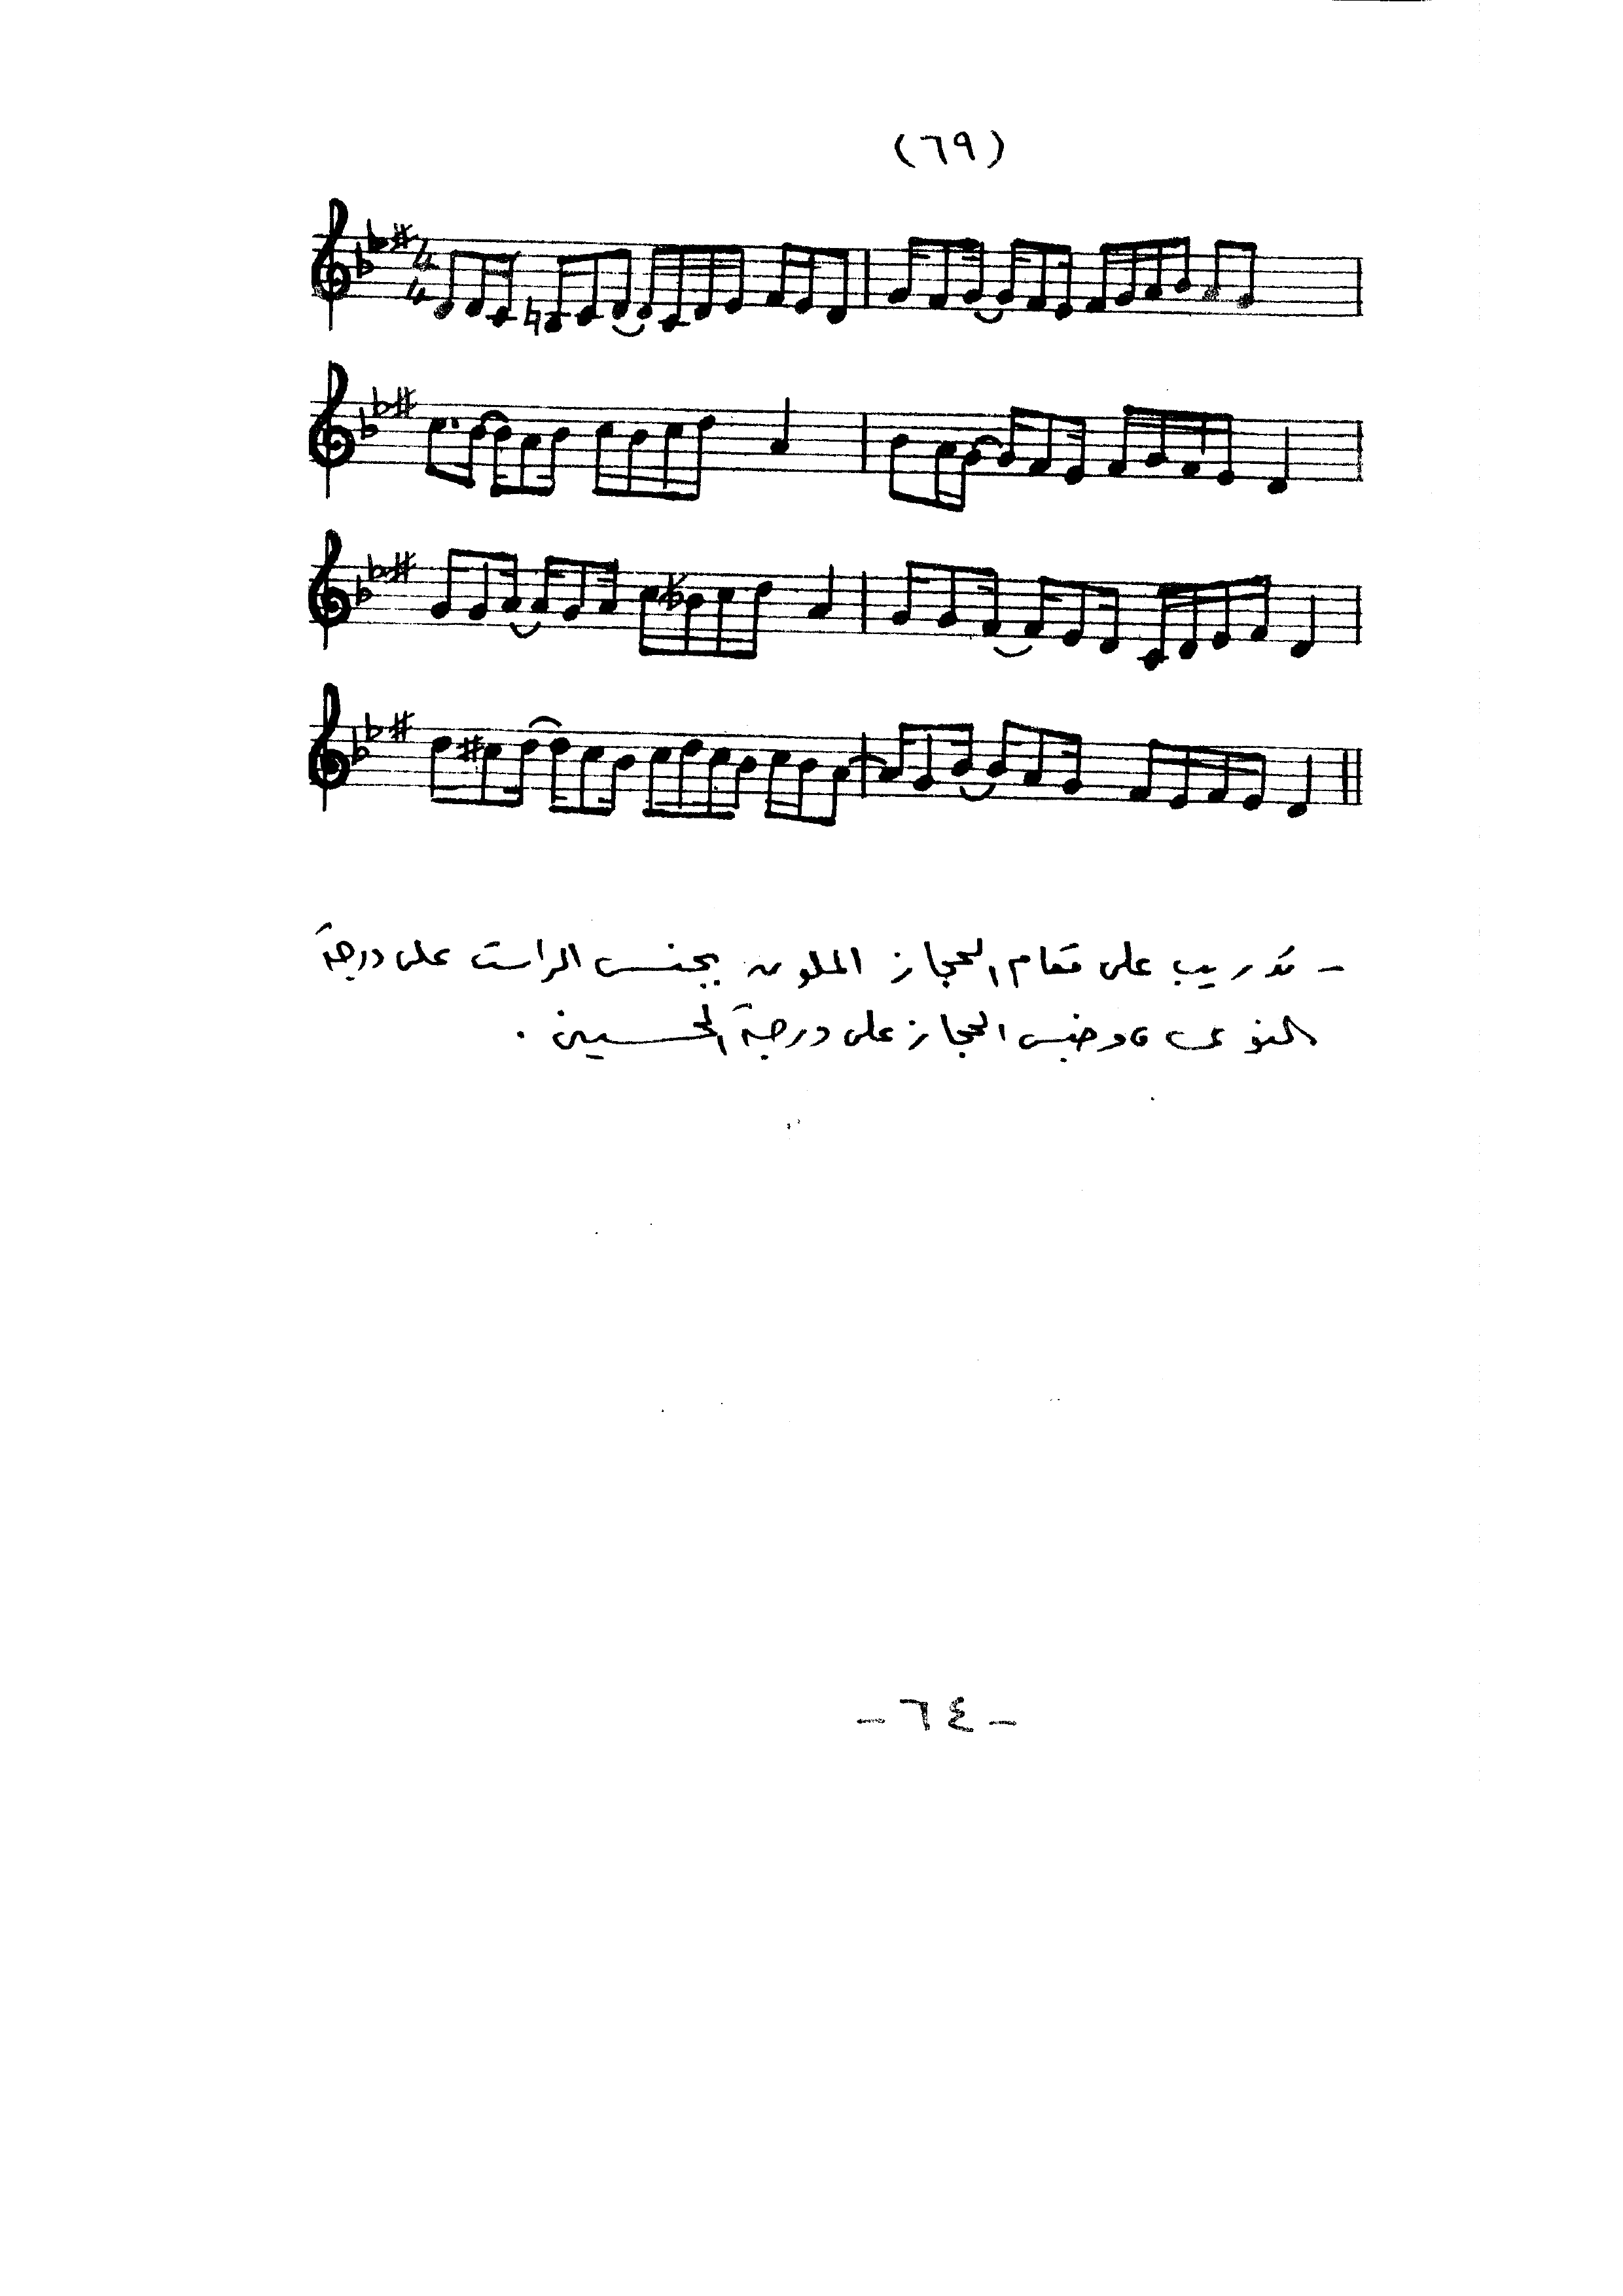 (٦٩)
4
4
- تدريب على مقام الحجاز الملون بجنس الراست على درجة
النوى، وجنس الحجاز على درجة الحسيني .
- ٦٤ -